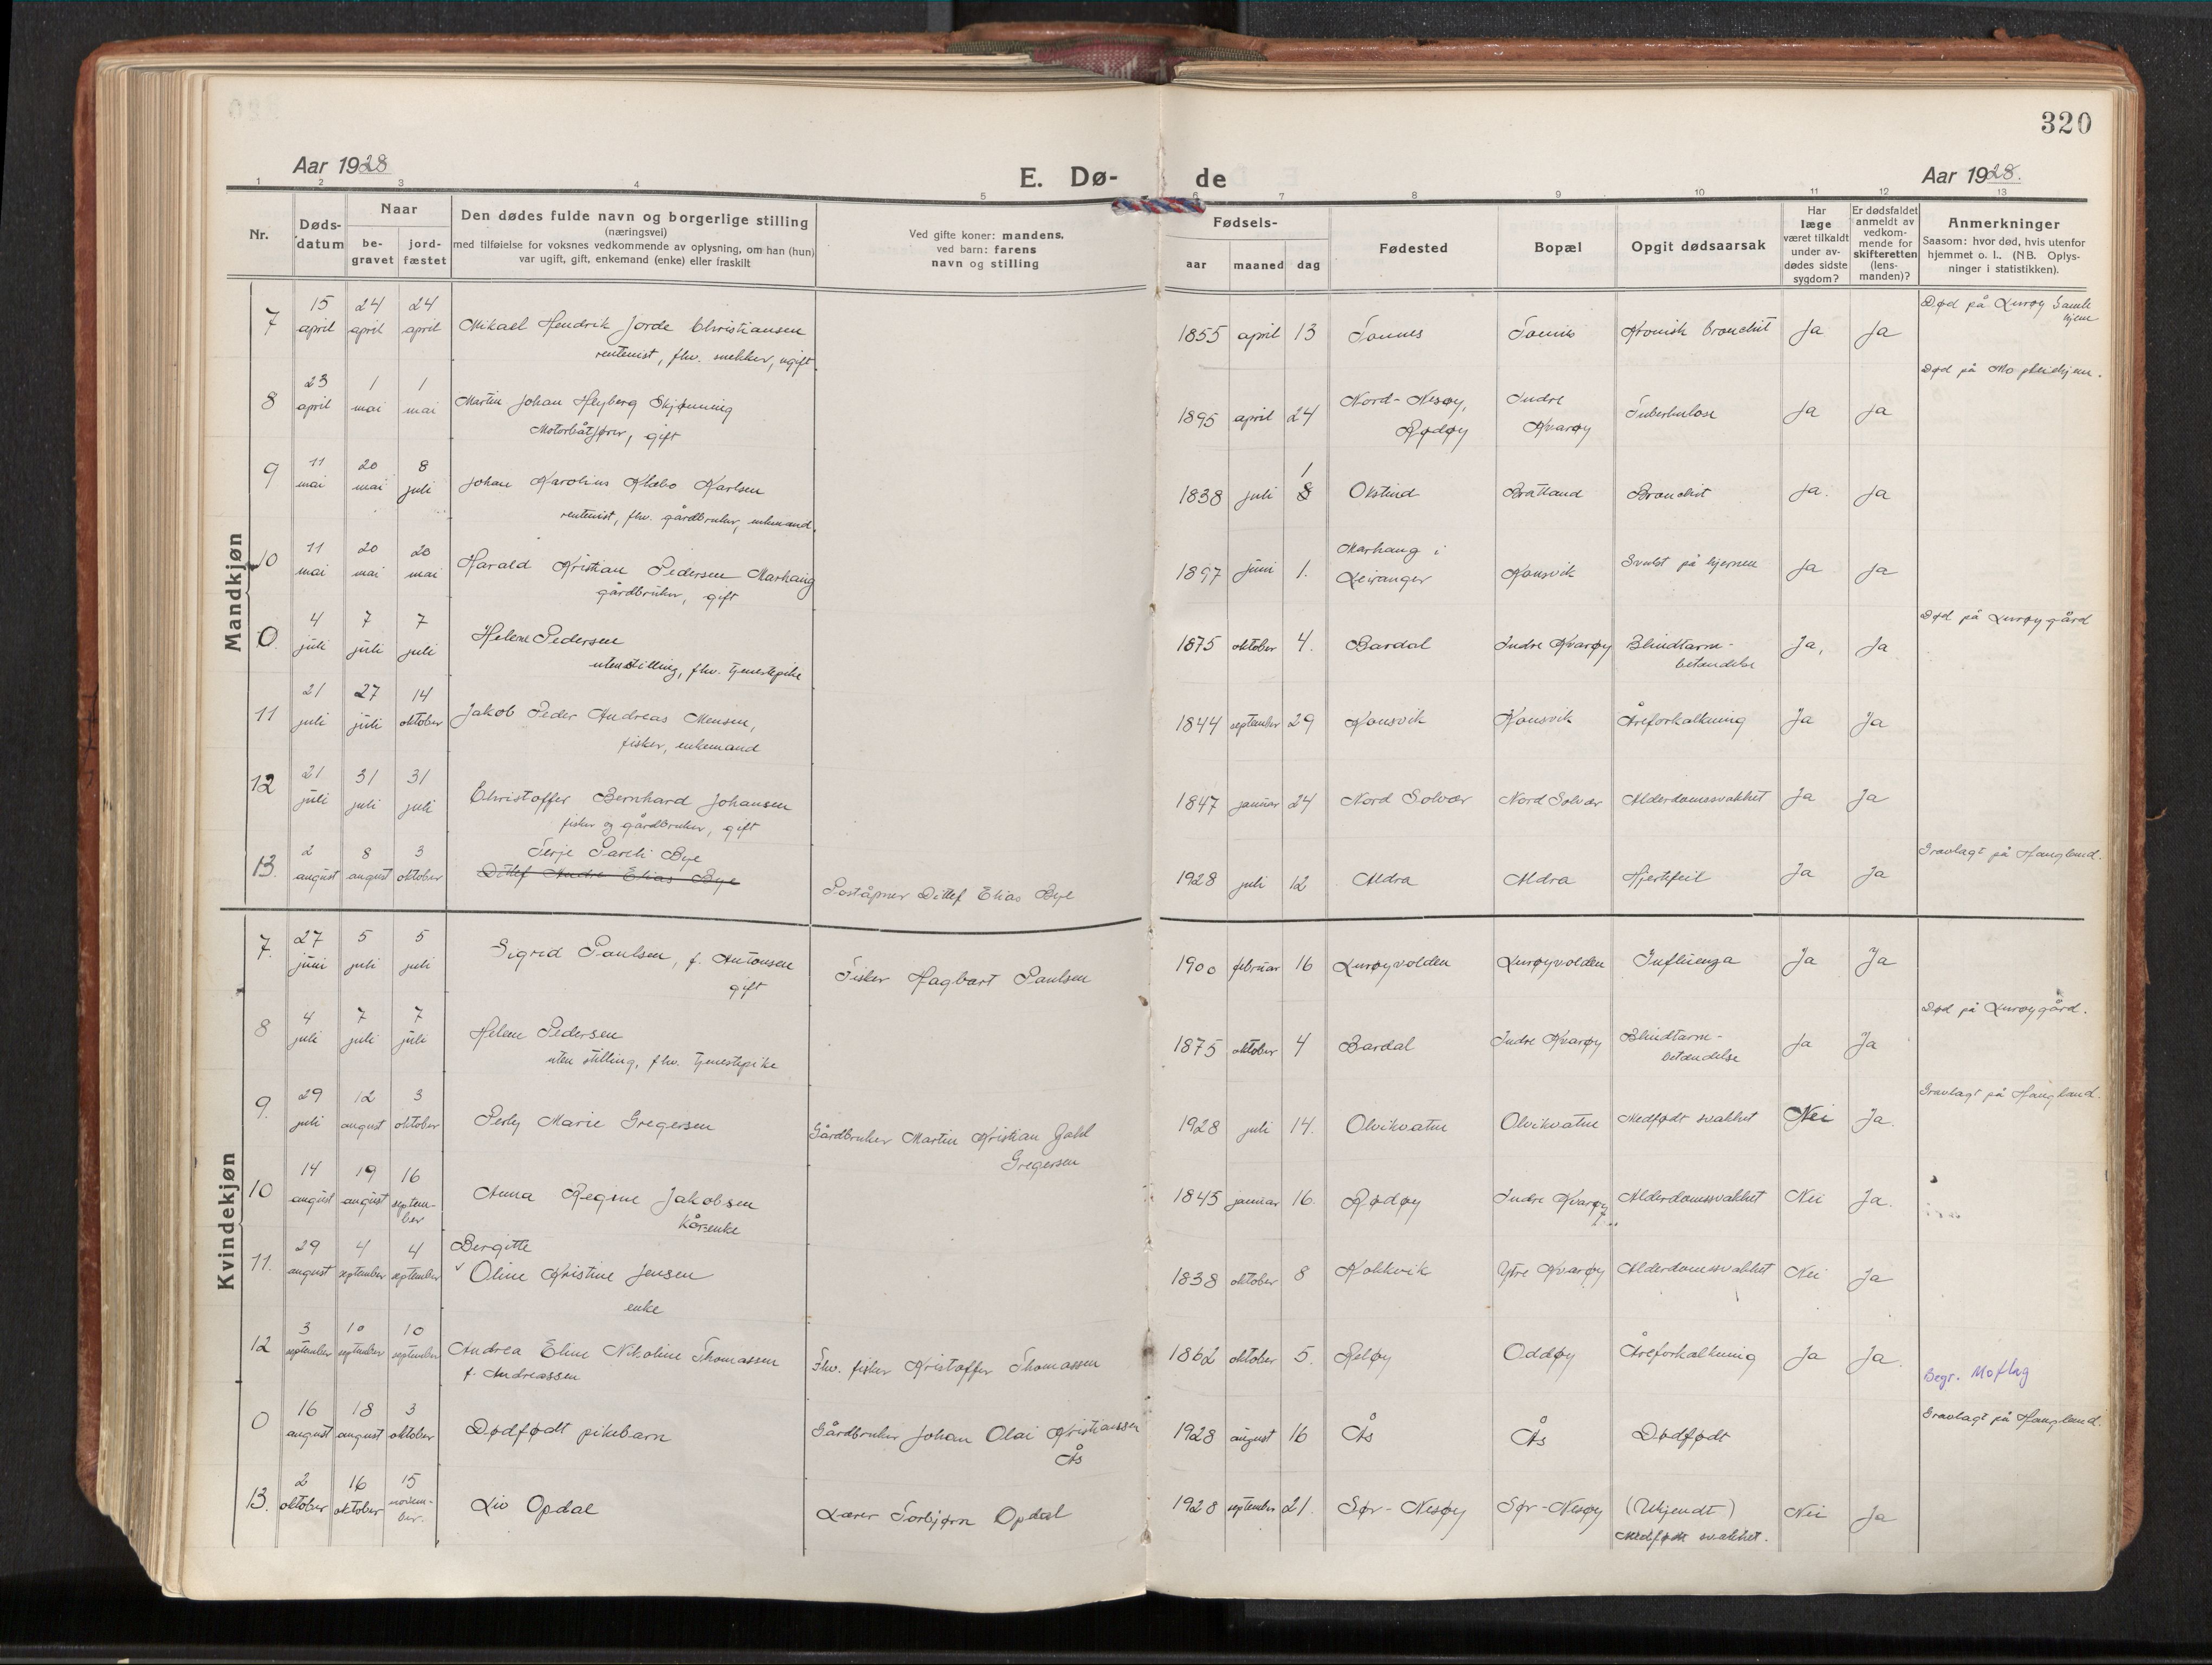 320
Aar 1928
E. Dø-
de
Aar 1928.
1 2 3 4 5 6 7 8 9 10 11 12 13
Nr.
Døds-
datum
Naar
be-
gravet
jord-
fæstet
Den dødes fulde navn og borgerlige stilling
(næringsvei)
med tilføielse for voksnes vedkommende av oplysning, om han (hun)
var ugift, gift, enkemand (enke) eller fraskilt
Ved gifte koner: mandens,
ved barn: farens
navn og stilling
Fødsels-
aar maaned dag
Fødested
Bopæl
Opgit dødsaarsak
Har
læge
været tilkaldt
under av-
dødes sidste
sygdom?
Er dødsfaldet
anmeldt av
vedkom-
mende for
skifteretten
(lens-
manden)?
Anmerkninger
Saasom: hvor død, hvis utenfor
hjemmet o. l.. (NB. Oplys-
ninger i statistikken).
Mandkjøn
7 15 april 24 april 24 april Mikael Hendrik Jorde Christiansen
rentenist, fhv. snekker, ugift
1855 april 13 Tonnes Tonnes Kronisk bronchit Ja Ja Død på Lurøy Gamle
hjem
8 23 april 1 mai 1 mai Martin Johan Heyberg Skjønning
Motorbåtfører, gift
1895 april 24 Nord-Nesøy,
Rødøy
Indre
Kvarøy
Tuberkulose Ja Ja Død på Mo pleiehjem.
9 11 mai 20 mai 8 juli Johan Karolius Klæbo Karlsen
rentenist, fhv. gårdbruker, enkemand.
1838 juli 8 1 Okstind Bratland Bronchit Ja. Ja
10 11 mai 20 mai 20 mai Harald Kristian Pedersen Marhaug
gårdbruker, gift
1897 juni 1. Marhaug i
Leiranger
Konsvik Svulst på hjernen Ja Ja
0. 4 juli 7 juli 7 juli Helene Pedersen
uten stilling, fhv. tjenestepike
1875 oktober 4. Bardal Indre Kvarøy Blindtarm-
betændelse
Ja, Ja Død på Lurøygård
11 21 juli 27 juli 14 oktober Jakob Peder Andreas Monsen,
fisker, enkemand
1844 september 29 Konsvik Konsvik Åreforkalkning Ja Ja
12 21 juli 31 juli 31 juli Christoffer Bernhard Johansen
fisker og gårdbruker, gift
1847 januar 24 Nord Solvær Nord Solvær Alderdomssvakhet Ja Ja
13. 2 august 8 august 3 oktober Terje Pareli Bye
Ditlef Andre Elias Bye
Poståpner Ditlef Elias Bye
1928 juli 12 Aldra Aldra Hjertefeil Ja Ja Gravlagt på Haugland.
Kvindekjøn
7. 27 juni 5 juli 5 juli Sigrid Paulsen, f. Antonsen
gift
Fisker Hagbart Paulsen
1900 februar 16 Lurøyvolden Lurøyvolden Influenza Ja Ja
8 4 juli 7 juli 7 juli Helene Pedersen
uten stilling, fhv. tjenestepike
1875 oktober 4 Bardal Indre Kvarøy Blindtarm-
betændelse
Ja Ja Død på Lurøygård.
9. 29 juli 12 august 3 oktober Perly Marie Gregersen
Gårdbruker Martin Kristian Dahl
Gregersen
1928 juli 14. Olvikvatne Olvikvatne Medfødt svakhet Nei Ja. Gravlagt på Haugland.
10 14 august 19 august 16 septem-
ber
Anna Regine Jakobsen
Kårenke
1845 januar 16. Rødøy Indre Kvarøy Alderdomssvakhet Nei Ja.
11. 29 august 4 september 4 september Bergitte
v Oline Kristine Jensen
enke
1838 oktober 8 Kokkvik Ytre Kvarøy Alderdomssvakhet Nei Ja
12 3 september 10 september 10 september Andrea Eline Nikoline Thomassen
f. Andreassen
Fhv. fisker Kristoffer Thomassen
1862 oktober 5. Reløy Oddøy Åreforkalkning Ja Ja. Begr. Moflag
0 16 august 18 august 3 oktober Dødfødt pikebarn
Gårdbruker Johan Olai Kristianssen
Ås
1928 august 16 Ås Ås Dødfødt Gravlagt på Haugland.
13. 2 oktober 16 oktober 15 novem-
ber.
Liv Opdal
Lærer Torbjørn Opdal
1928 september 21. Sør-Nesøy Sør-Nesøy (Ukjendt)
Medfødt svakhet.
Nei Ja